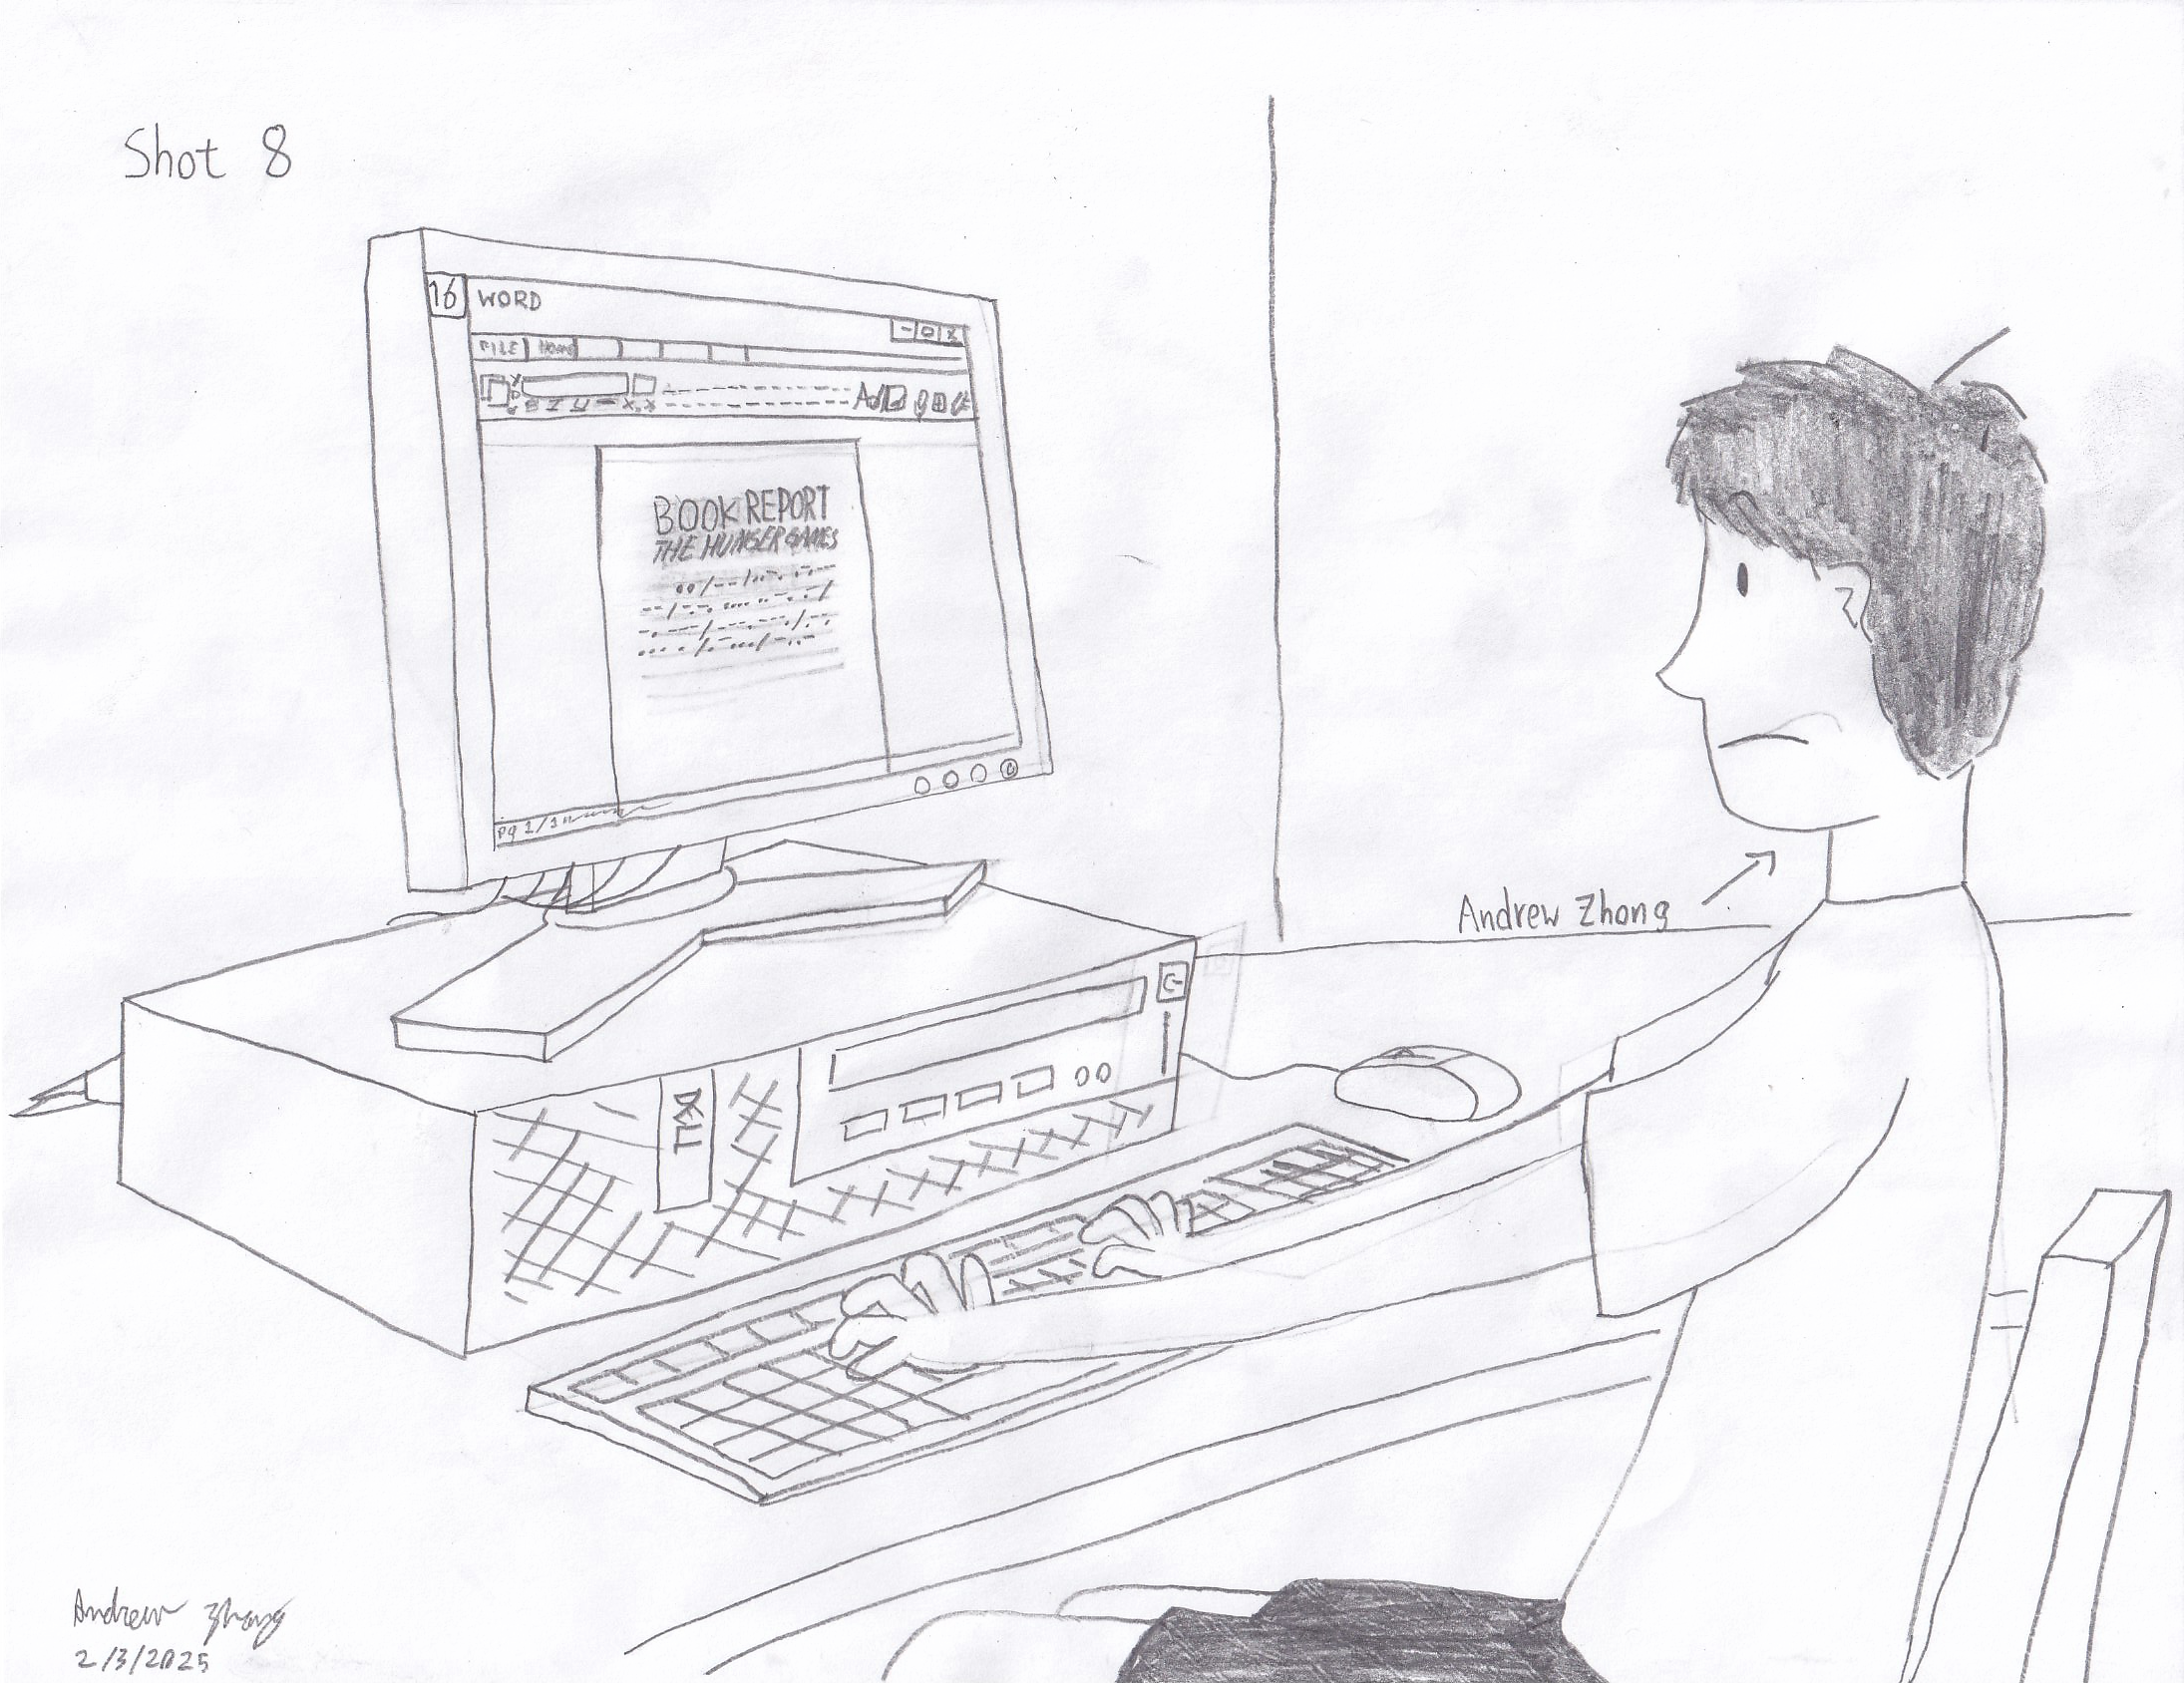 Shot 8
16 WORD
FILE Home
B I U
BOOK REPORT
THE HUNGER GAMES
pg 1/1
Andrew Zhong
DELL
Andrew Zhong
2/3/2025